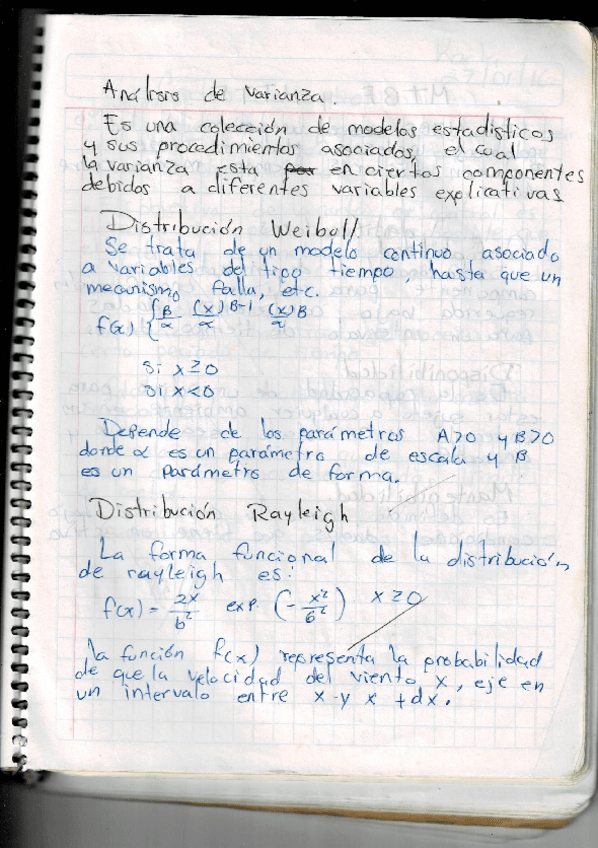 Análisis de varianza.
Es una colección de modelos estadisticos
y sus procedimientos asociados, el cual
la varianza esta en ciertos componentes
debidos a diferentes variables explicativas
Distribución Weibull
Se trata de un modelo continuo asociado
a variables del tipo tiempo, hasta que un
mecanismo falla, etc.
f(x) { β/α (x/α)^β-1 (x/α)^β
si x≥0
si x<0
Depende de los parámetros A>0 y B>0
donde α es un parámetro de escala y β
es un parámetro de forma.
Distribución Rayleigh
La forma funcional de la distribución
de rayleigh es:
f(x) = 2x/b² exp. (- x²/b²) x≥0
La función f(x) representa la probabilidad
de que la velocidad del viento x, eje en
un intervalo entre x y x + dx.